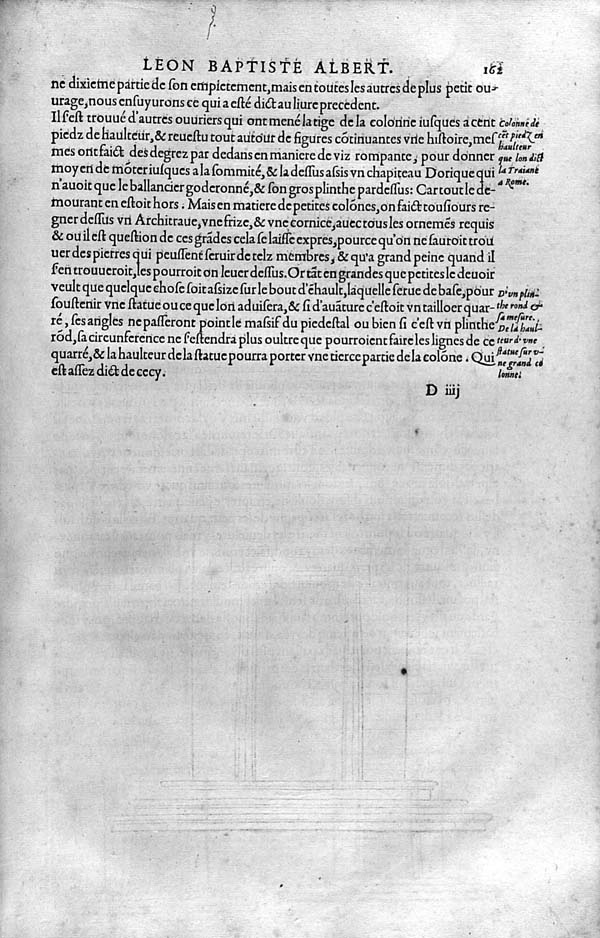 LEON BAPTISTE ALBERT. 162
ne dixieme partie de son empietement, mais en toutes les autres de plus petit ou-
urage, nous ensuyurons ce qui a esté dict au liure precedent.
Il s'est trouué d'autres ouuriers qui ont mené la tige de la colonne iusques a cent
piedz de haulteur, & reuestu tout autour de figures cõtinuantes vne histoire, mes
mes ont faict des degrez par dedans en maniere de viz rompante, pour donner
moyen de mõter iusques a la sommité, & la dessus assis vn chapiteau Dorique qui
n'auoit que le ballancier goderonné, & son gros plinthe par dessus: Car tout le de-
mourant en estoit hors. Mais en matiere de petites colõnes, on faict tousiours re-
gner dessus vn Architraue, vne frize, & vne cornice, auec tous les ornemẽs requis
& ou il est question de ces grãdes cela se laisse expres, pource qu'on ne sauroit trou
uer des pierres qui peussent seruir de telz membres, & qu'a grand peine quand il
s'en trouueroit, les pourroit on leuer dessus. Or tãt en grandes que petites le deuoir
veult que quelque chose soit assize sur le bout d'ẽhault, laquelle serue de base, pour
soustenir vne statue ou ce que lon aduisera, & si d'auãture c'estoit vn tailloer quar-
ré, ses angles ne passeront point le massif du piedestal ou bien si c'est vn plinthe
rõd, sa circunference ne s'estendra plus oultre que pourroient faire les lignes de ce
quarré, & la haulteur de la statue pourra porter vne tierce partie de la colõne. Qui
est assez dict de cecy.
D iiij
Colonne de
cẽt piedz en
haulteur
que lon dict
la Traiane
a Rome.
D'vn plin-
the rond &
sa mesure.
De la haul-
teur d'vne
statue sur v-
ne grand co
lonne.